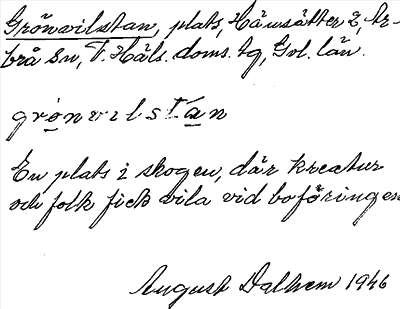 Grönvilstan, plats, Håvsätter 2, Ar-
brå sn, V. Häls. doms. tg, Gvl. län.
grönvilstan
En plats i skogen, där kreatur
och folk fick vila vid boföringen
August Dalhem 1946